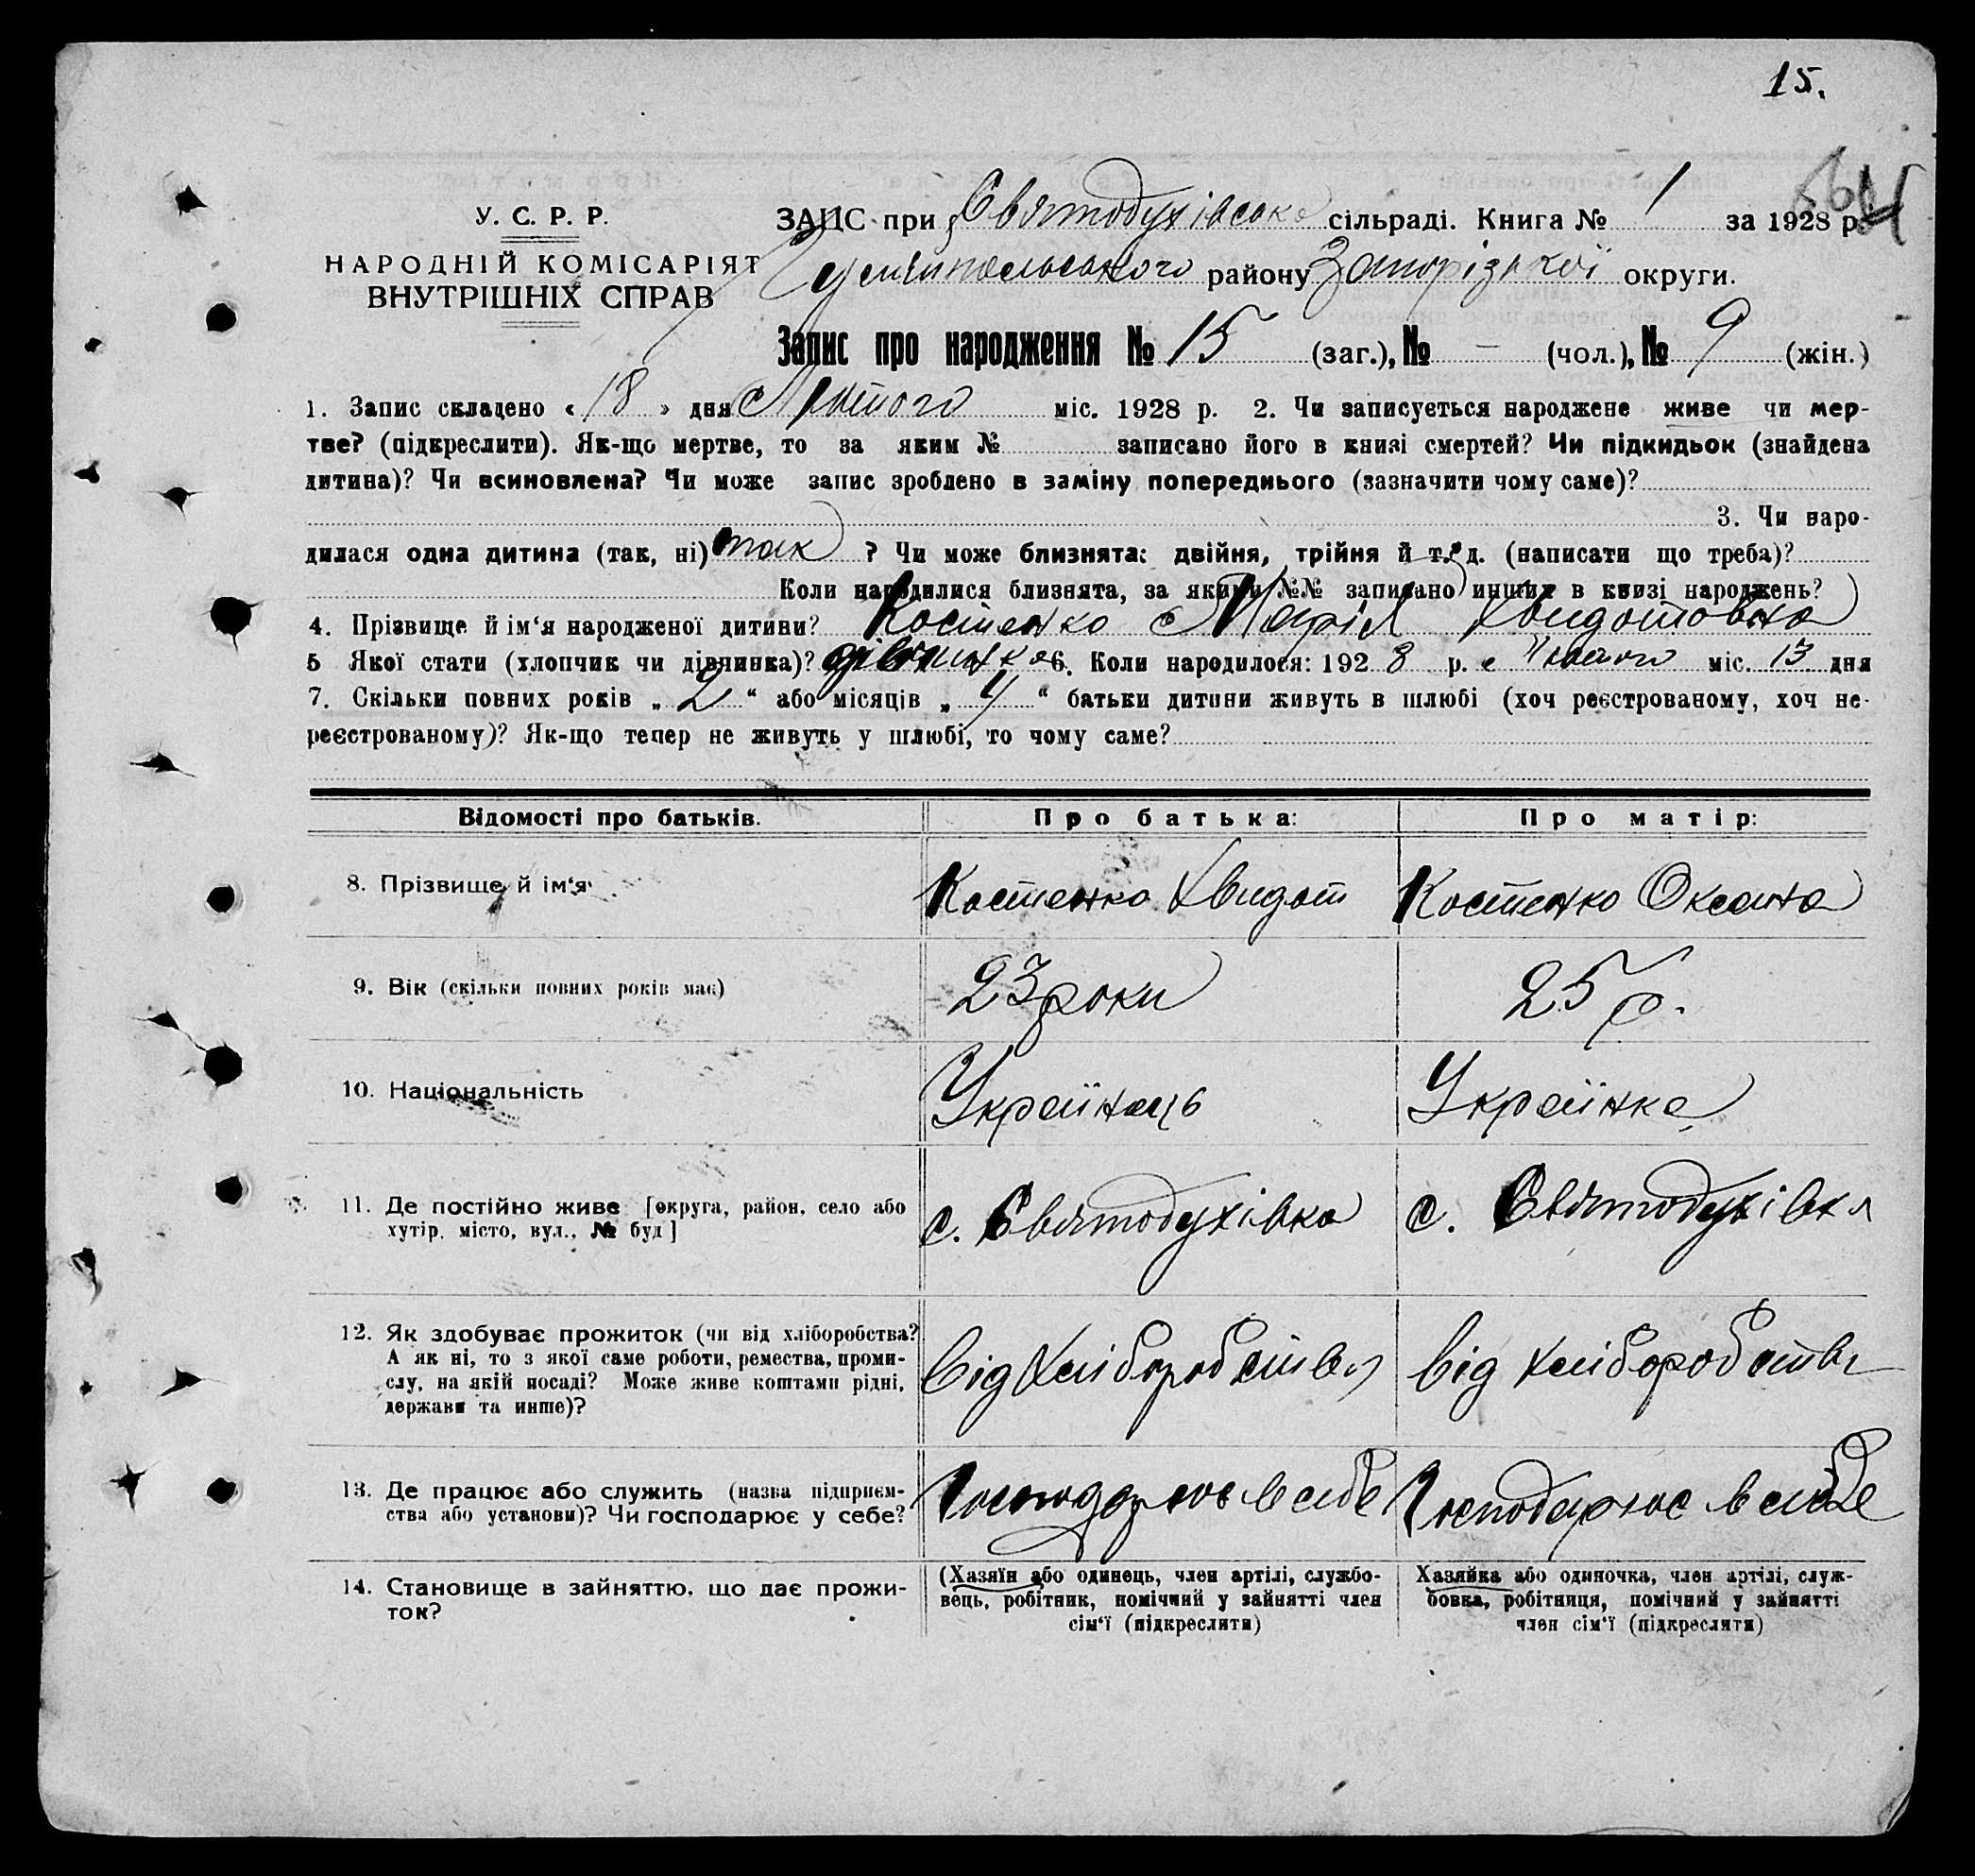 15.
У. С. Р. Р.
НАРОДНІЙ КОМІСАРІЯТ
ВНУТРІШНІХ СПРАВ
ЗАЦС при Святодухівська сільраді. Книга № 1 за 1928 р.
Гуляйпольського району Запорізької округи.
Запис про народження № 15 (заг.), № — (чол.), № 9 (жін.)
1. Запис складено « 18 » дня Лютого міс. 1928 р. 2. Чи записується народжене живе чи мер-
тве? (підкреслити). Як-що мертве, то за яким № записано його в книзі смертей? Чи підкидьок (знайдена
дитина)? Чи всиновлена? Чи може запис зроблено в заміну попереднього (зазначити чому саме)?
3. Чи наро-
дилася одна дитина (так, ні) так ? Чи може близнята: двійня, трійня й т. д. (написати що треба)?
Коли народилися близнята, за якими №№ записано инших в книзі народжень?
4. Прізвище й ім‘я народженої дитини? Костенко Марія Хвидотовна
5 Якої стати (хлопчик чи дівчинка)? дівчинка 6. Коли народилося: 192 8 р. Лютого міс. 13 дня
7. Скільки повних років „ 2 “ або місяців „ 4 “ батьки дитини живуть в шлюбі (хоч реєстрованому, хоч не-
реєстрованому)? Як-що тепер не живуть у шлюбі, то чому саме?
Відомості про батьків. Про батька: Про матір:
8. Прізвище й ім‘я Костенко Хвидот Костенко Оксана
9. Вік (скільки повних років має) 23 роки 25 р.
10. Національність Українець Українка
11. Де постійно живе [округа, район, село або
хутір, місто, вул., № буд]
с. Святодухівка с. Святодухівка
12. Як здобуває прожиток (чи від хліборобства?
А як ні, то з якої саме роботи, ремества, проми-
слу, на якій посаді? Може живе коштами рідні,
держави та инше)?
від Хліборобства від хліборобства
13. Де працює або служить (назва підприєм-
ства або установи)? Чи господарює у себе?
Господарює в себе Господарює в себе
14. Становище в зайняттю, що дає прожи-
ток?
(Хазяїн або одинець, член артілі, службо-
вець, робітник, помічний у зайнятті член
сім‘ї (підкреслити)
Хазяйка або одиночка, член артілі, служ-
бовка, робітниця, помічний у зайнятті
член сім‘ї (підкреслити)